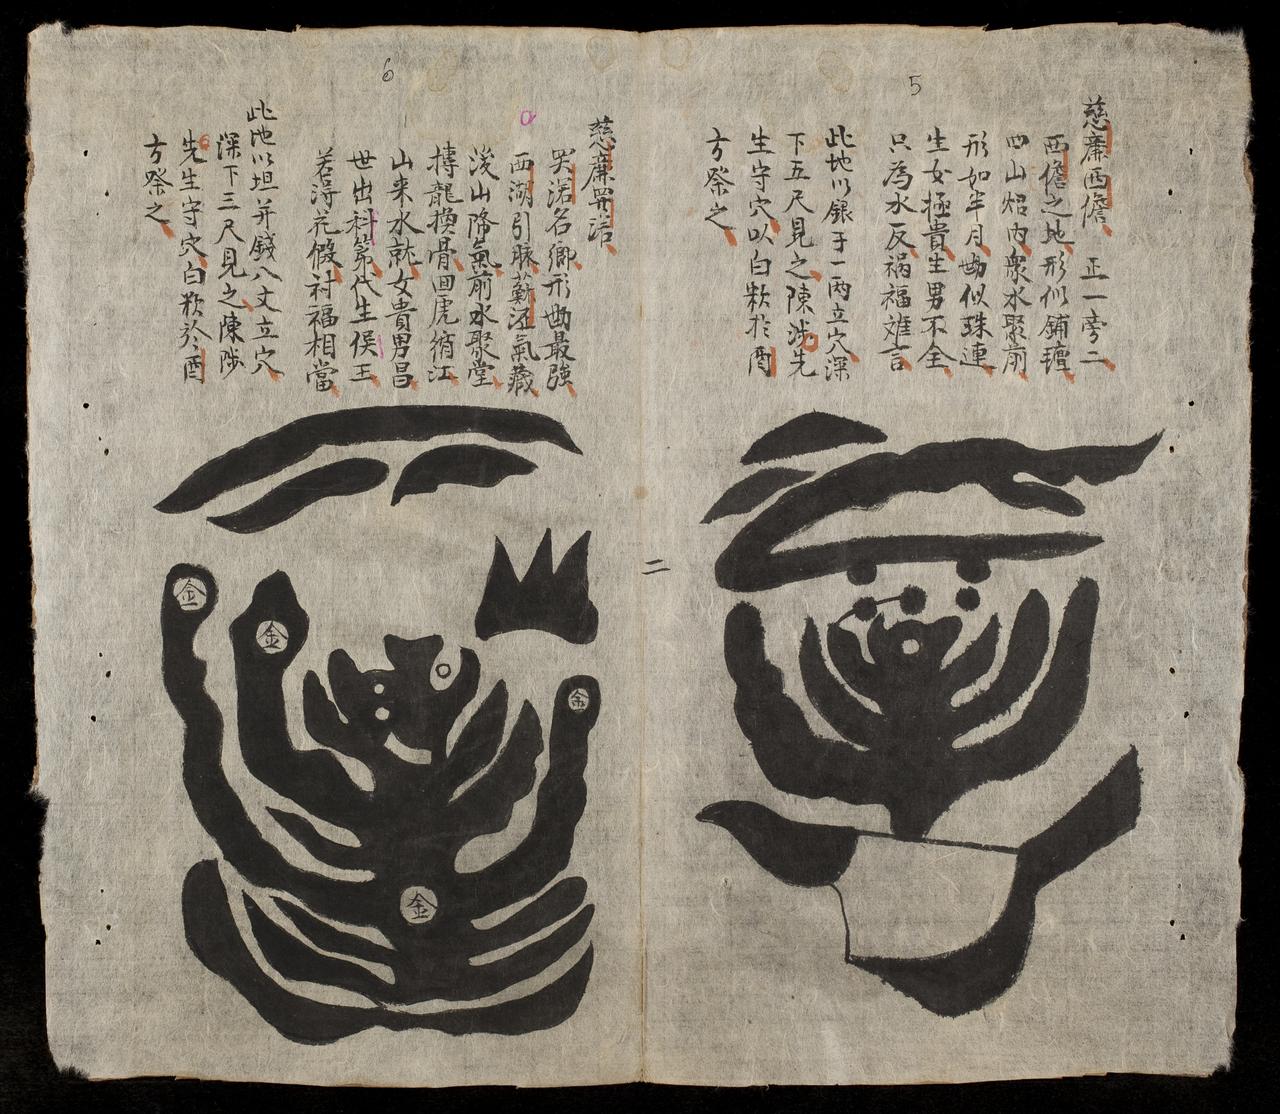 5
慈廉西儋 正一旁二
西儋之地形似鋪氊
四山炤內衆水聚前
形如半月勢似珠連
生女極貴生男不全
只為水反禍福难言
此地以銀子一两立穴深
下五尺見之陳涉先
生守穴以白粄於酉
方祭之
二
6
慈廉罘渃
罘渃名鄉形勢最強
西湖引脉 氣藏
後山降氣前水聚堂
摶龍換骨回虎綃江
山来水就女貴男昌
世出科第代生侯王
若淂花假封福相當
此地以垣并錢八丈立穴
深下三尺見之陳涉
先生守穴白粄於酉
方祭之
金
金
金
金